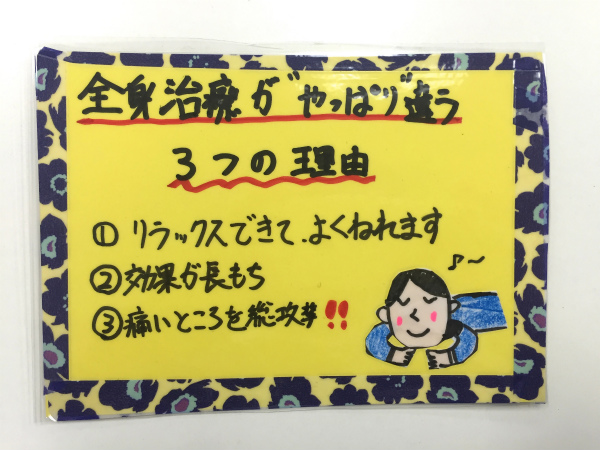 全身治療が"やっぱり"違う
3つの理由
① リラックスできて、よくねれます
② 効果が長もち
③ 痛いところを総攻撃!!
♪〜